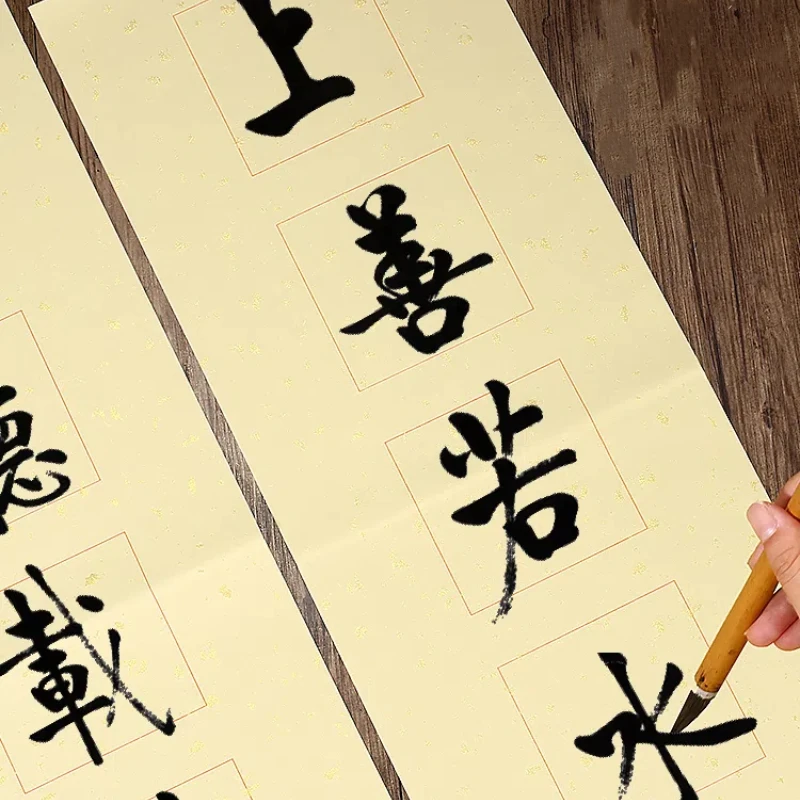 上善若水
德載